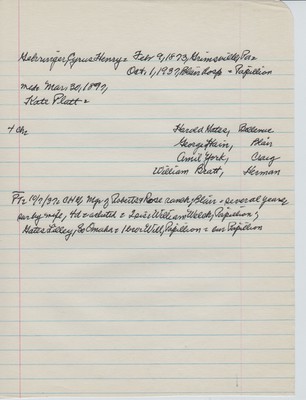 Gehringer, Cyrus Henry = Feb 9, 1873, Grimsville, Pa =
Oct. 1, 1937, Blair hosp = Papillion
md = Mar. 30, 1897,
Kate Platt =
4 ch = Harold Hates, Bellevue
George Hain, Blair
Amil York, Craig
William Bratt, Herman
PT = 10/7/37 = CHG, Mgr of Roberts & Rose ranch, Blair = several years,
sur by wife, 4d = adusted = Lewis William Welch, Papillion;
Hates Lilley, So Omaha = 1 bror Will, Papillion = bur Papillion